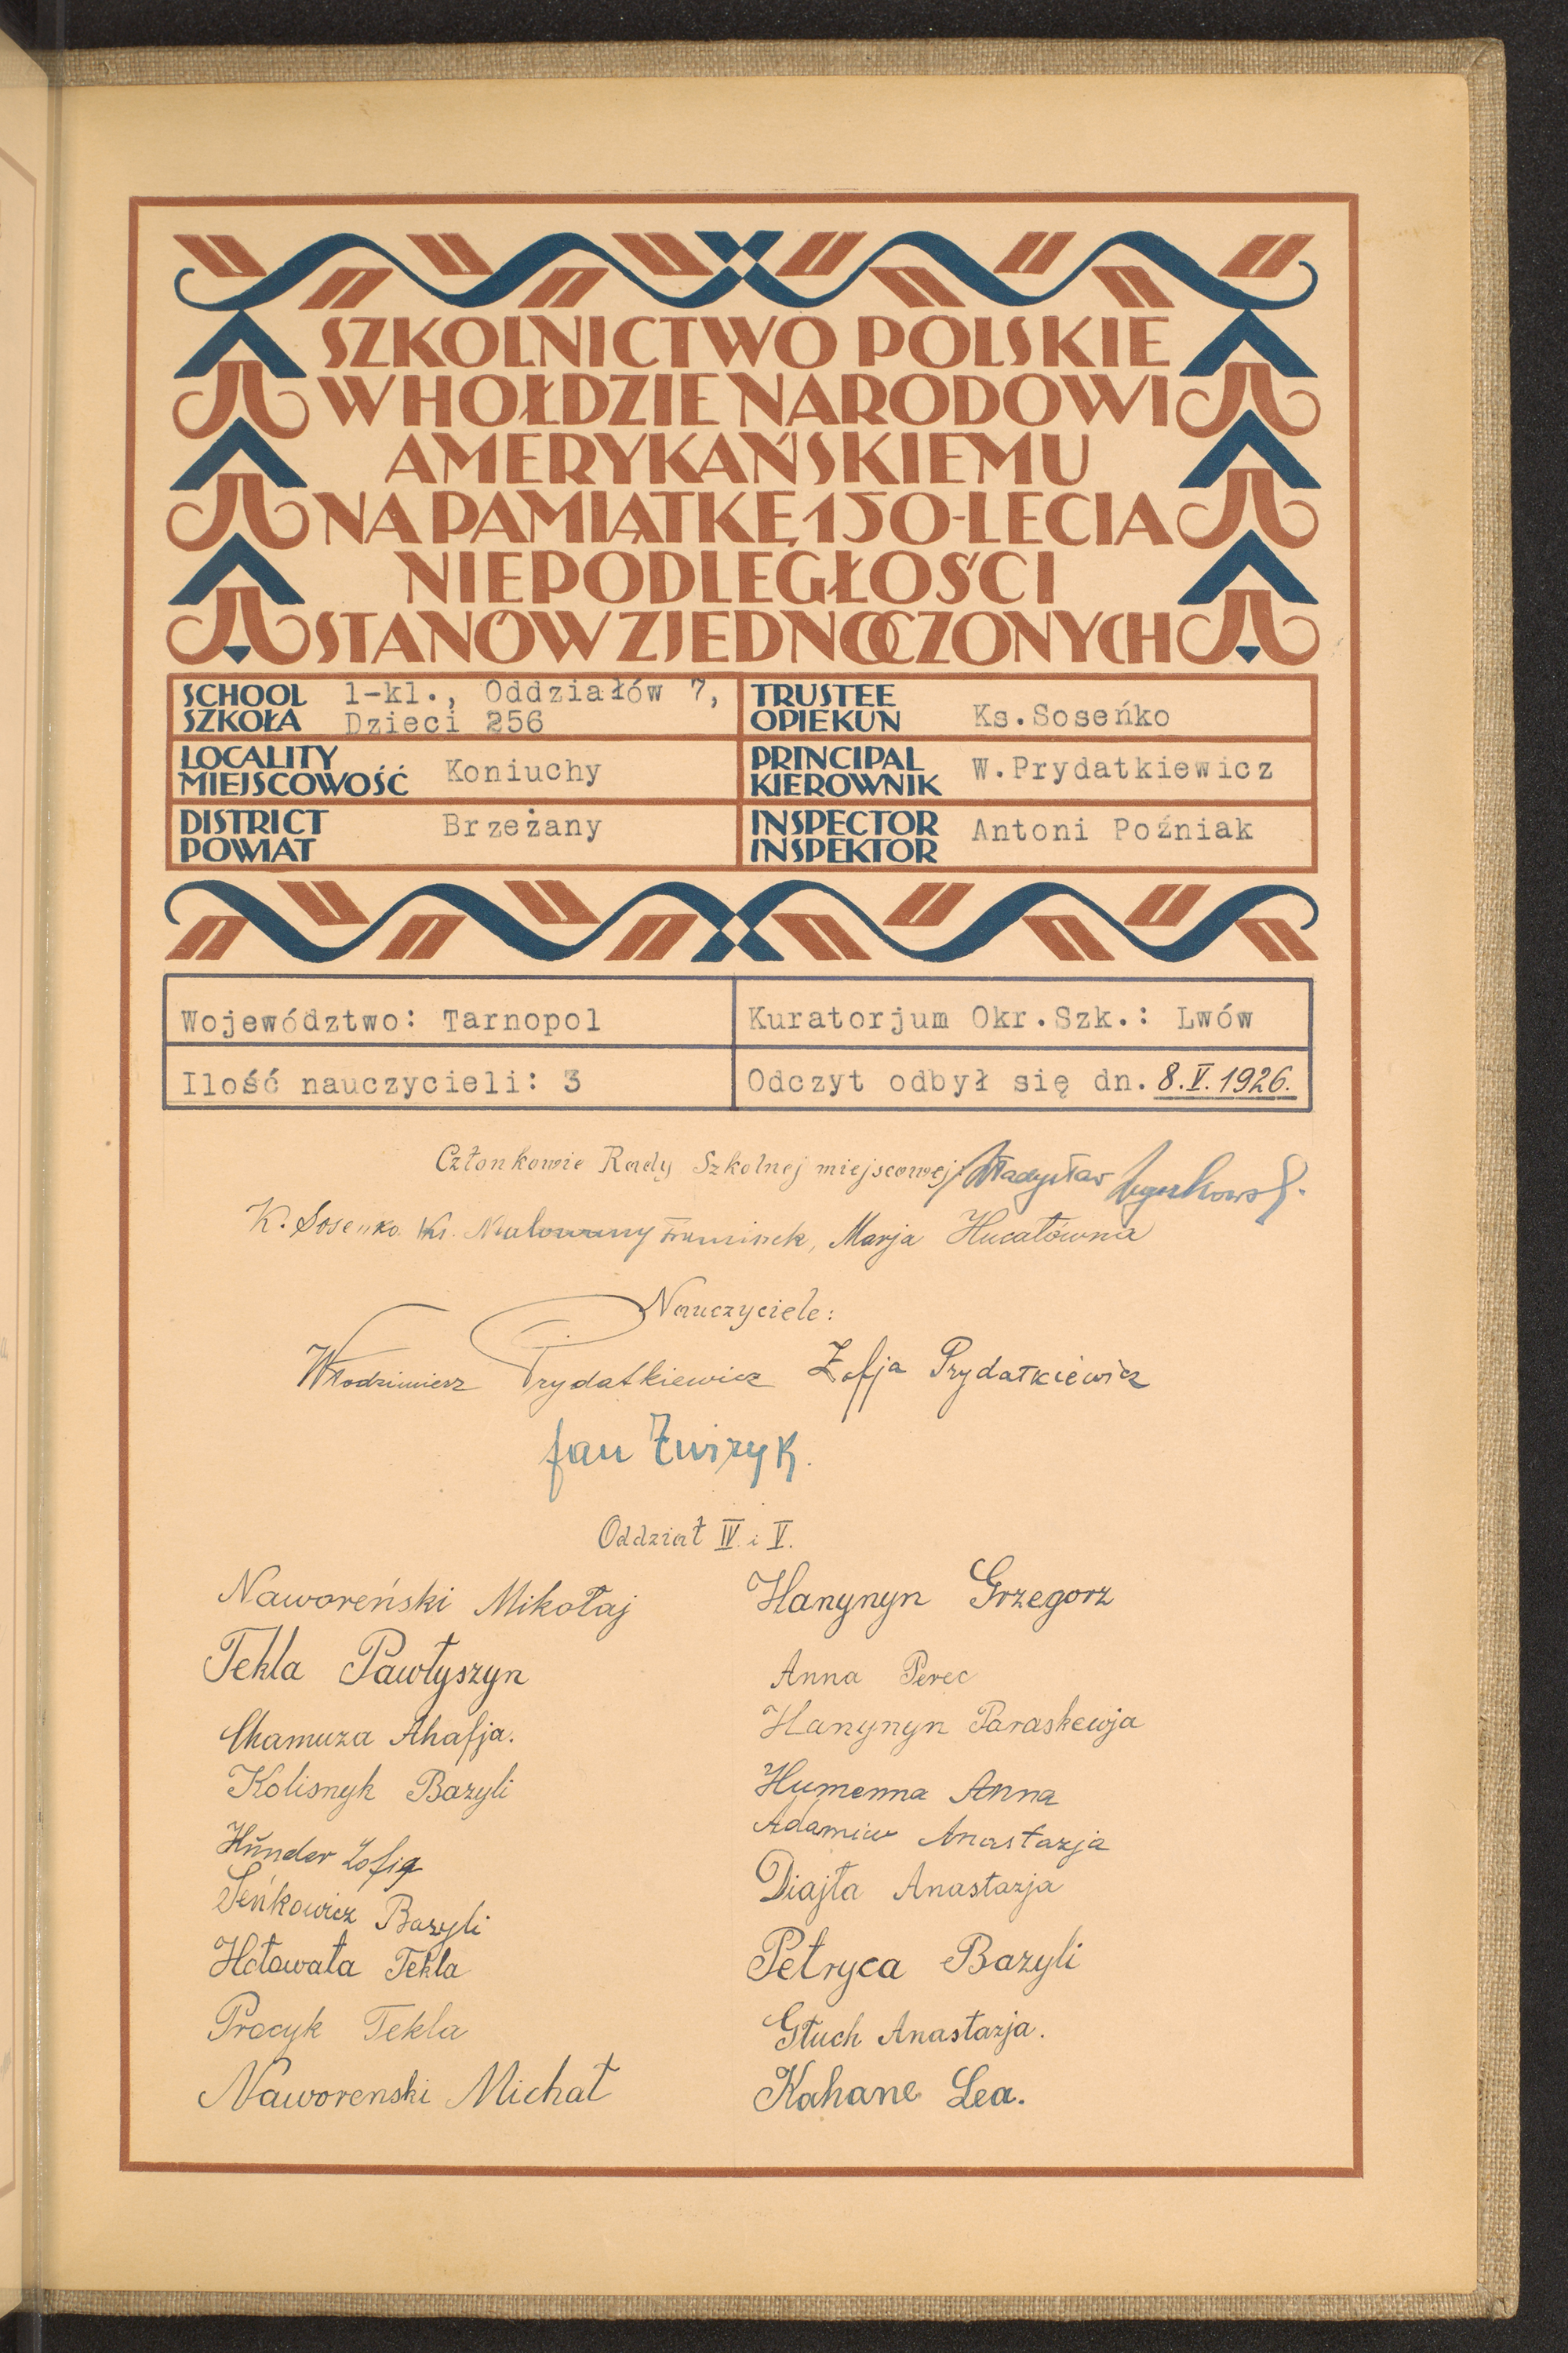 SZKOLNICTWO POLSKIE
W HOŁDZIE NARODOWI
AMERYKAŃSKIEMU
NA PAMIĄTKĘ 150-LECIA
NIEPODLEGŁOŚCI
STANÓW ZJEDNOCZONYCH
SCHOOL SZKOŁA 1-kl., Oddziałów 7, Dzieci 256
TRUSTEE OPIEKUN Ks.Soseńko
LOCALITY MIEJSCOWOŚĆ Koniuchy
PRINCIPAL KIEROWNIK W.Prydatkiewicz
DISTRICT POWIAT Brzeżany
INSPECTOR INSPEKTOR Antoni Poźniak
Województwo: Tarnopol
Kuratorjum Okr.Szk.: Lwów
Ilość nauczycieli: 3
Odczyt odbył się dn. 8.V.1926.
Członkowie Rady Szkolnej miejscowej: Władysław
K. Sosenko Ks. Malowany Franciszek, Marja Hucałówna
Nauczyciele:
Włodzimierz Prydatkiewicz Zofja Prydatkiewicz
Jan Żwizyk.
Oddział IV i V.
Naworeński Mikołaj
Tekla Pawłyszyn
Chamuza Ahafja.
Kolisnyk Bazyli
Hŭnder Zofia
Seńkowicz Bazyli
Hołowata Tekla
Procyk Tekla
Naworenski Michał
Hanynyn Grzegorz
Anna Perec
Hanynyn Paraskewja
Humenna Anna
Adamiw Anastazja
Diajła Anastazja
Petryca Bazyli
Głuch Anastazja.
Kahane Lea.